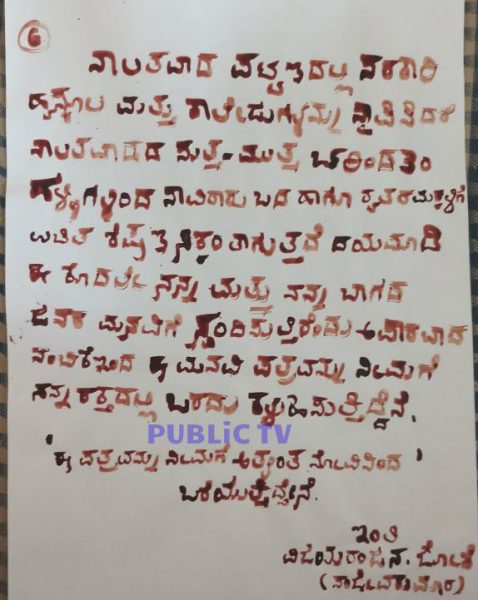 6
ನಾಲತವಾದ ಪಟ್ಟಣದಲ್ಲಿ ಸರಕಾರಿ
ಹೈಸ್ಕೂಲ ಮತ್ತು ಕಾಲೇಜುಗಳನ್ನು ಸ್ಥಾಪಿಸಿದರೆ
ನಾಲತವಾಡದ ಸುತ್ತ-ಮುತ್ತ
ಹಳ್ಳಿಗಳಿಂದ ಸಾವಿರಾರು ಬಡ ಹಾಗೂ ರೈತರ ಮಕ್ಕಳಿಗೆ
ಉಚಿತ ದಯಮಾಡಿ
ಈ ಕೂಡಲೇ ನನ್ನ ಮತ್ತು ನನ್ನ ಬಾಗದ
ಜನರ ಮನವಿಗೆ ಸ್ಪಂದಿಸುತ್ತಿರೆಂದು ಅಪಾರವಾದ
ನಂಬಿಕೆಇಂದ ಈ ಮನವಿ ಪತ್ರವನ್ನು ನಿಮಗೆ
ನನ್ನ ರಕ್ತದಲ್ಲಿ ಬರೆದು ಕಳುಹಿಸುತ್ತಿದ್ದೆನೆ.
PUBLiC TV
ಈ ಪತ್ರವನ್ನು ನಿಮಗೆ ಅತ್ಯಂತ ನೋವಿನಿಂದ
ಬರೆಯುತ್ತಿದ್ದೇನೆ.
ಇಂತಿ
ವಿಜಯರಂಜನ. ಜೋಶಿ